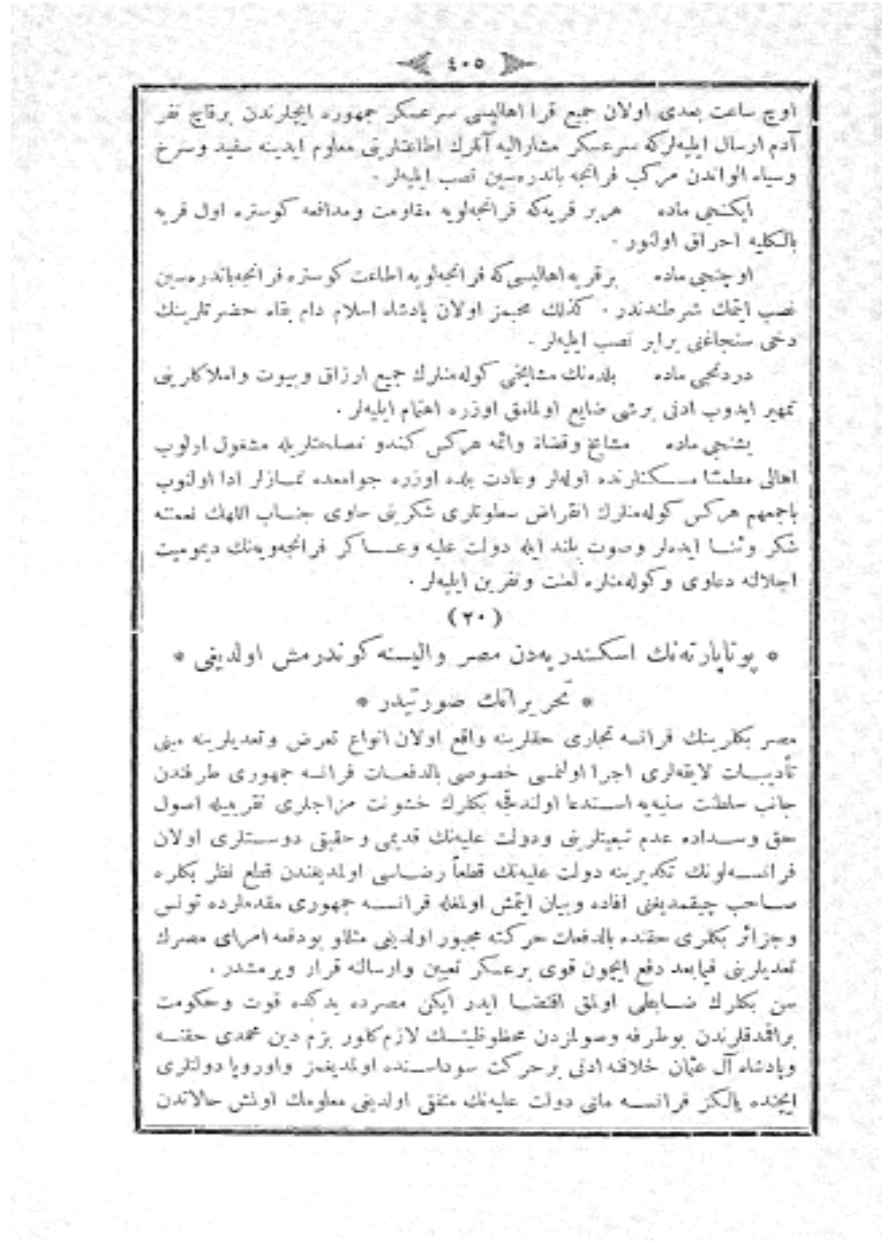 ٤٠٥
اوچ ساعت بعدی اولان جمیع قرا اهالیسی سرعسكر جمهوره ایچلرندن برقاچ نفر
آدم ارسال ایلیه‌لركه سرعسكر مشارالیه آنلرك اطاعتلرینی معلوم ایدینه سفید وسرخ
وسیاه الواندن مركب فرانچه باندره‌سین نصب ایلیه‌لر .
ایكنجی ماده هربر قریه‌كه فرانچه‌لویه مقاومت ومدافعه كوستره اول قریه
بالكلیه احراق اولنور .
اوچنجی ماده برقریه اهالیسی كه فرانچه‌لویه اطاعت كوستره فرانچه باندره‌سین
نصب ایتمك شرطندندر . كذلك محبمز اولان پادشاه اسلام دام بقاه حضرتلرینك
دخی سنجاغنی برابر نصب ایلیه‌لر .
دردنجی ماده بلده‌نك مشایخی كوله‌منلرك جمیع ارزاق وبیوت واملاكلرینی
تمهیر ایدوب ادنی برشی ضایع اولمامق اوزره اهتمام ایلیه‌لر .
بشنجی ماده مشایخ وقضاة وائمه هركس كندو مصلحتلریله مشغول اولوب
اهالی مطمئنا مسكنلرنده اوله‌لر وعادت بلده اوزره جوامعده نمازلر ادا اولنوب
باجمعهم هركس كوله‌منلرك انقراض سطوتلری شكرینی حاوی جناب اللهك نعمتنه
شكر وثنا ایده‌لر وصوت بلند ایله دولت علیه وعساكر فرانچه‌ویه‌نك دیمومیت
اجلالنه دعاوی وكوله‌منلره لعنت ونفرین ایلیه‌لر .
(٢٠)
* بوناپارته‌نك اسكندریه‌دن مصر والیسنه كوندرمش اولدیغی *
* تحریراتك صورتیدر *
مصر بكلرینك فرانسه تجاری حقلرینه واقع اولان انواع تعرض وتعدیلرینه مبنی
تأدیبات لایقه‌لری اجرا اولنمسی خصوصی بالدفعات فرانسه جمهوری طرفندن
جانب سلطنت سنیه‌یه استدعا اولندقجه بكلرك خشونت مزاجلری تقریبیله اصول
حق وسداده عدم تبعیتلرینی ودولت علیه‌نك قدیمی وحقیقی دوستلری اولان
فرانسه‌لونك تكدیرینه دولت علیه‌نك قطعاً رضاسی اولمدیغندن قطع نظر بكلره
صاحب چیقمدیغنی افاده وبیان ایتمش اولمغله فرانسه جمهوری مقدملرده تونس
وجزائر بكلری حقنده بالدفعات حركته مجبور اولدیغی مثللو بودفعه امرای مصرك
تعدیلرینی فیمابعد دفع ایچون قوی برعسكر تعیین وارسالنه قرار ویرمشدر .
سن بكلرك ضابطی اولمق اقتضا ایدر ایكن مصرده یدكده قوت وحكومت
براقمدقلرندن بوطرفه وصولمزدن محظوظیتك لازم كلور بزم دین محمدی حقنه
وپادشاه آل عثمان خلافنه ادنی برحركت سوداسنده اولمدیغمز واوروپا دولتلری
ایچنده یالكز فرانسه مانی دولت علیه‌نك متفقی اولدیغی معلومك اولمش حالاتدن